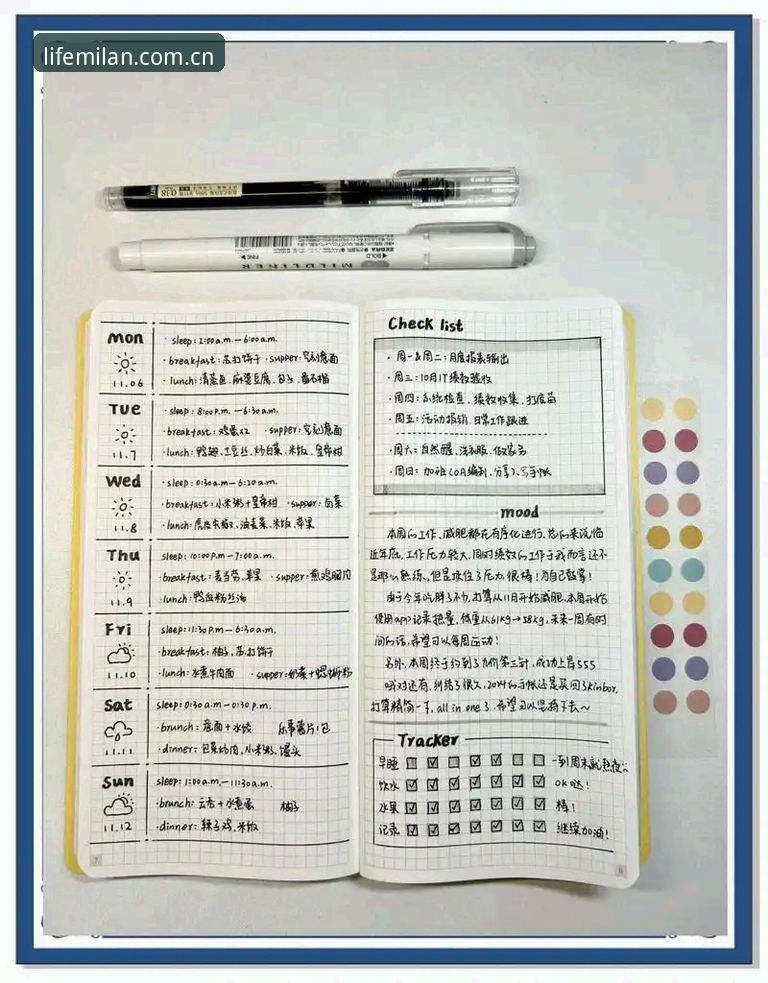 lifemilan.com.cn
0.38
ZEBRA
BOLD
FINE
MILDLINER
Mon
11.06
· sleep: 2:00a.m. — 6:00a.m.
· breakfast: 苏打饼干 · supper: 意面
· lunch: 清蒸鱼. 麻婆豆腐. 包子. 番石榴
TUE
11.7
· sleep: 8:00 P.m. — 6:30 a.m.
· breakfast: 鸡蛋x2 · supper: 意面
· lunch: 鸭翅. 土豆丝. 炒白菜. 米饭. 皇帝柑
Wed
11.8
· sleep: 0:30a.m — 6:20a.m.
· breakfast: 小米粥+皇帝柑 · supper: 卤菜
· lunch: 虎皮 油麦菜. 米饭. 苹果
Thu
11.9
sleep: 10:00P.m — 7:00a.m.
· breakfast: 麦当劳. 苹果 · supper: 煎鸡胸肉
· lunch: 鸭血粉丝汤
Fri
11.10
sleep: 11:30 P.m — 6:30a.m.
· breakfast: 柚子. 苏打饼干
· lunch: 水煮牛肉面 · supper: 奶茶+螺蛳粉
Sat
11.11
sleep: 0:30 a.m — 0:30 p.m.
· brunch: 意面+水饺 乐事薯片1包
· dinner: 包菜炒肉. 小米粥. 馒头
Sun
11.12
sleep: 1:00a.m. — 11:30a.m.
· brunch: 云吞+水煮蛋 柚子
· dinner: 辣子鸡. 米饭
Check list
· 周一&周二: 月度报表输出
· 周三: 10月IT绩效验收
· 周四: 系统检查. 绩效收集. 打疫苗
· 周五: 活动报销. 日常工作跟进
· 周六: 自然醒. 洗衣服. 做家务
· 周日: 加班(10月编制. 分享). 写手帐
mood
本周的工作. 减肥都在有序化进行. 总的来说临
近年底. 工作压力较大. 同时绩效的工作于我而言还不
是那么熟练. 但是抗住了压力. 很棒! 为自己鼓掌!
由于今年吃胖了不少. 打算从11月开始减肥. 本周开始
使用app记录热量. 体重从61kg→58kg. 未来一周有时
间的话. 希望可以每周运动!
另外. 本周终于约到了九价第三针. 成功上岸555
哦对还有. 纠结了很久. 2024的手帐还是买回了kinbor.
打算精简一下. all in one了. 希望可以坚持下去~
Tracker
早睡 一到周末就熬夜
饮水 OK哒!
水果 棒!
记录 继续加油!
7
8